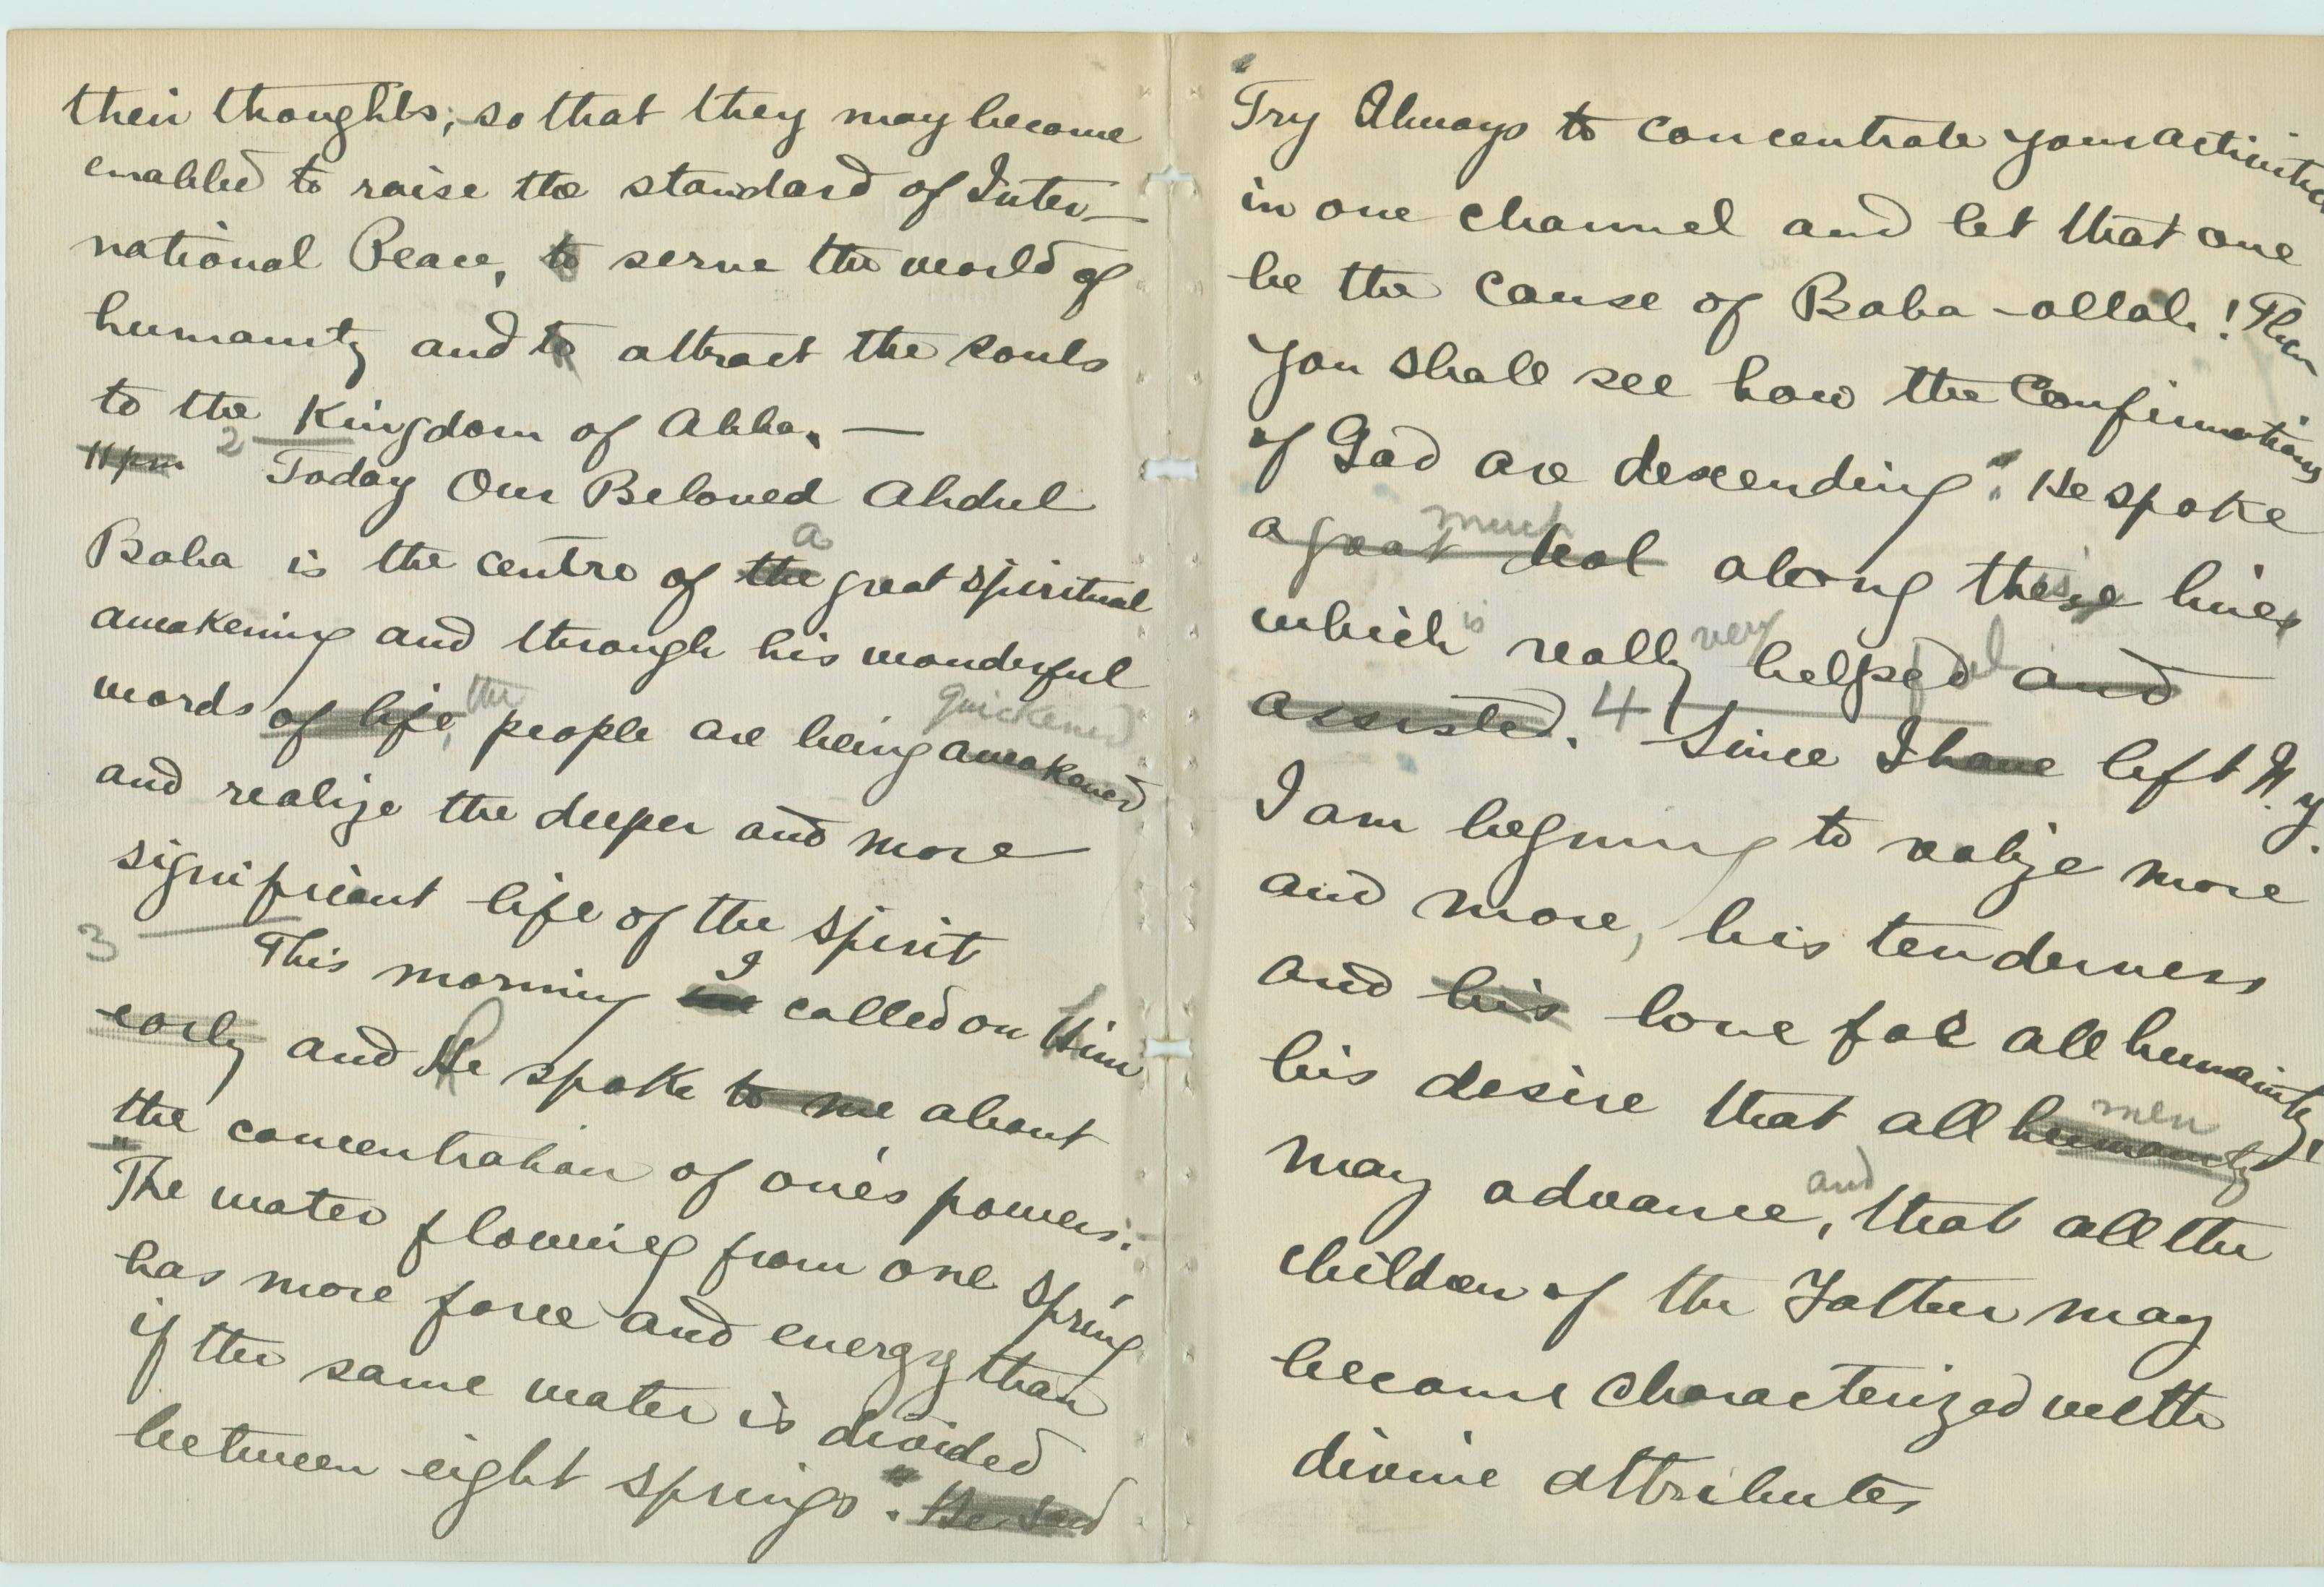 their thoughts, so that they may become
enabled to raise the standard of Inter-
national Peace, to serve the world of
humanity and to attract the souls
to the Kingdom of Abha. —
11 pm 2 Today Our Beloved Abdul
a
Baha is the centre of the great spiritual
awakening and through his wonderful
the quickened
words of life, people are being awakened
and realize the deeper and more
significant life of the spirit
3 This morning I called on Him
early and He spoke to me about
the concentration of one's powers.
"The water flowing from one spring
has more force and energy than
if the same water is divided
between eight springs". He said
Try Always to concentrate your activities
in one channel and let that one
be the Cause of Baha-ollah! Then
you shall see how the Confirmations
of God are descending". He spoke
much
a great deal along these lines
is very ful
which really helped and
assisted. 4 Since I have left N.Y.
I am begning to realize more
and more, his tenderness
and his love for all humanity!
his desire that all humanity
men
and
may advance, that all the
children of the Father may
become characterized with
divine attributes